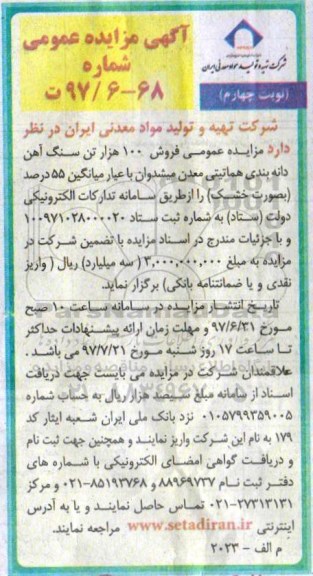 شرکت تهیه و تولید مواد معدنی ایران
(نوبت چهارم)
آگهی مزایده عمومی
شماره
۶۸-۶ /۹۷ ت
شرکت تهیه و تولید مواد معدنی ایران در نظر
دارد مزایده عمومی فروش ۱۰۰ هزار تن سنگ آهن
دانه بندی هماتیتی معدن میشدوان با عیار میانگین ۵۵ درصد
(بصورت خشک) را ازطریق سامانه تدارکات الکترونیکی
دولت (ستاد) به شماره ثبت ستاد ۱۰۰۹۷۱۰۲۸۰۰۰۰۲۰
و با جزئیات مندرج در اسناد مزایده با تضمین شرکت در
مزایده به مبلغ ۳,۰۰۰,۰۰۰,۰۰۰ ( سه میلیارد) ریال ( واریز
نقدی و یا ضمانتنامه بانکی) برگزار نماید.
تاریخ انتشار مزایده در سامانه ساعت ۱۰ صبح
مورخ ۹۷/۶/۳۱ و مهلت زمان ارائه پیشنهادات حداکثر
تا ساعت ۱۷ روز شنبه مورخ ۹۷/۷/۲۱ می باشد.
علاقمندان شرکت در مزایده می بایست جهت دریافت
اسناد از سامانه مبلغ سیصد هزار ریال به حساب شماره
۰۱۰۵۷۹۹۳۵۹۰۰۵ نزد بانک ملی ایران شعبه ایثار کد
۱۷۹ به نام این شرکت واریز نمایند و همچنین جهت ثبت نام
و دریافت گواهی امضای الکترونیکی با شماره های
دفتر ثبت نام ۸۸۹۶۹۷۳۷ و ۸۵۱۹۳۷۶۸-۰۲۱ و مرکز
۲۷۳۱۳۱۳۱-۰۲۱ تماس حاصل نمایند و یا به آدرس
اینترنتی www.setadiran.ir مراجعه نمایند.
م الف - ۲۰۲۳